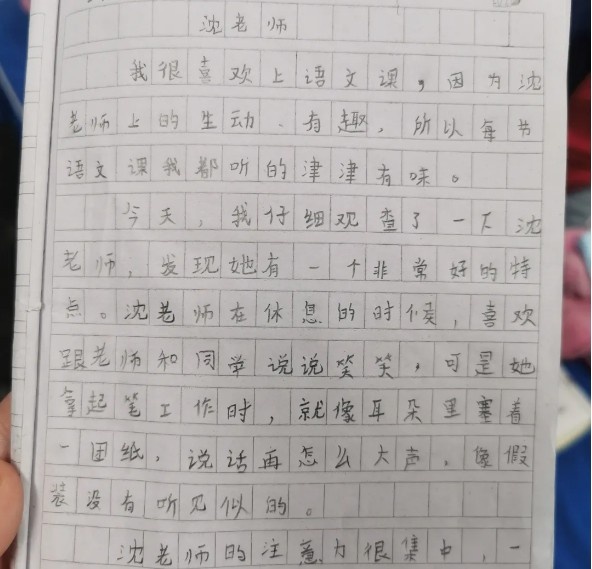 沈老师
我很喜欢上语文课，因为沈
老师上的生动、有趣，所以每节
语文课我都听的津津有味。
今天，我仔细观查了一下沈
老师，发现她有一个非常好的特
点。沈老师在休息的时候，喜欢
跟老师和同学说说笑笑，可是她
拿起笔工作时，就像耳朵里塞着
一团纸，说话再怎么大声，像假
装没有听见似的。
沈老师的注意力很集中，一